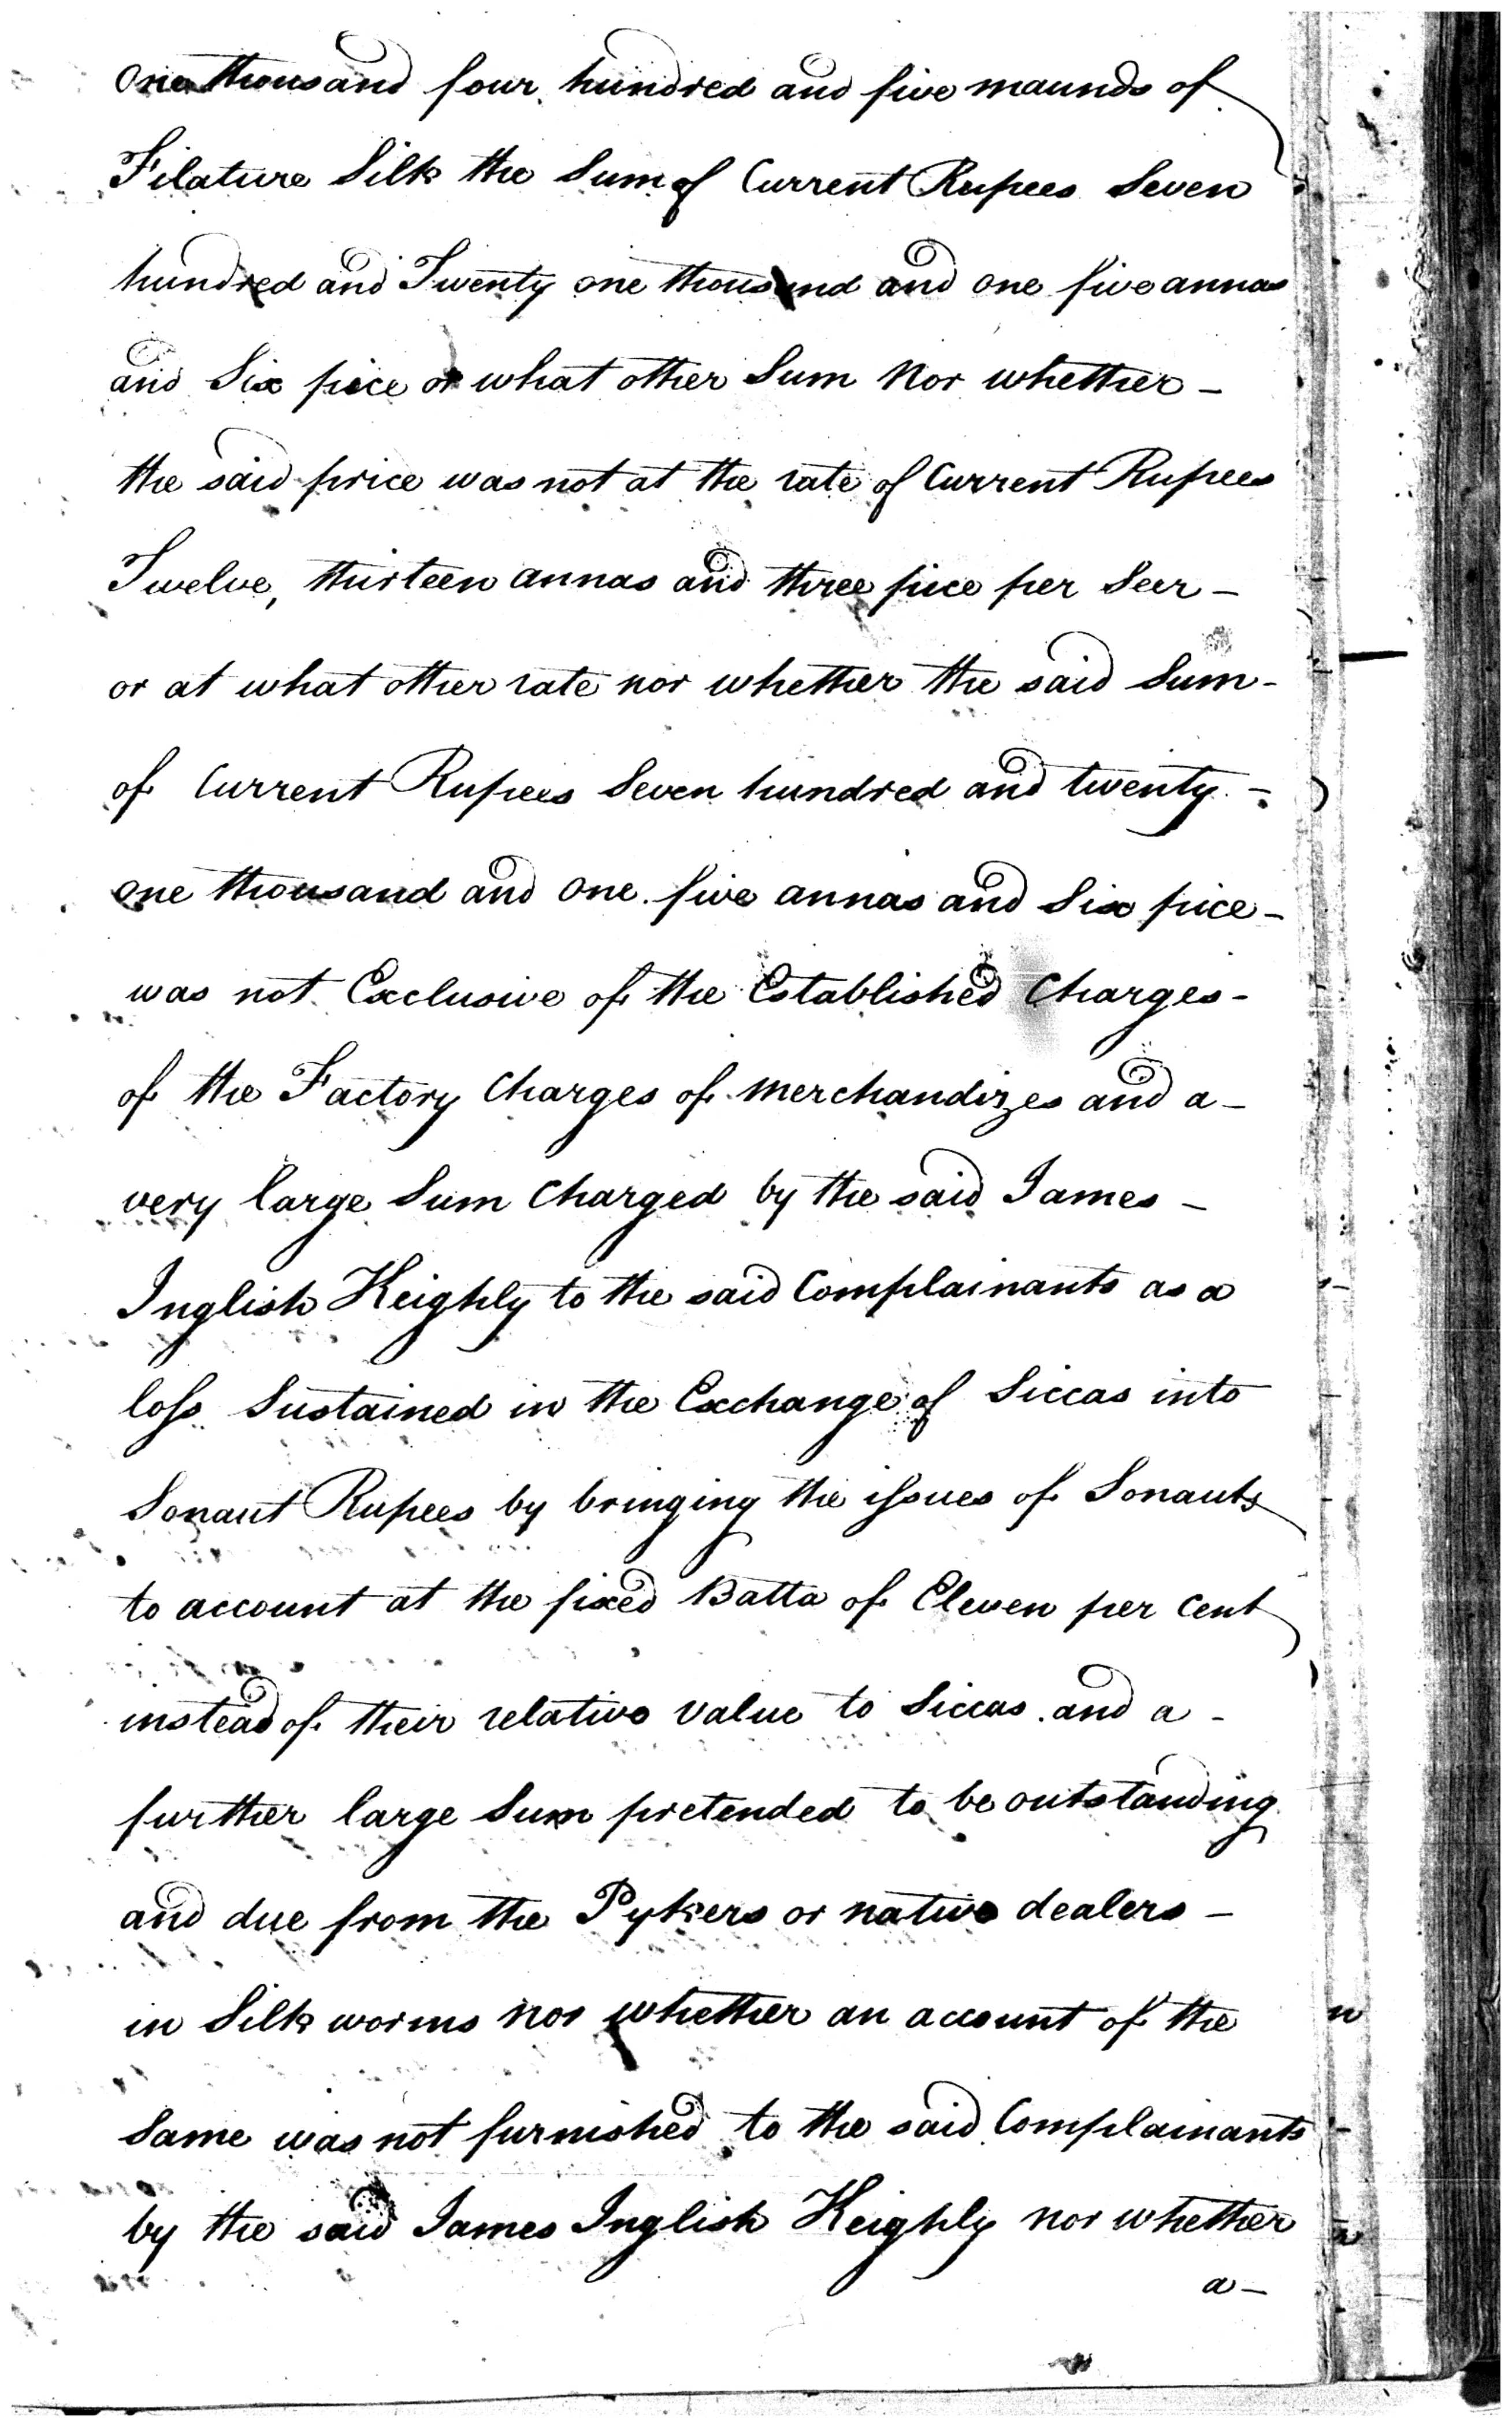 One thousand four hundred and five maunds of
Filature Silk the Sum of Current Rupees Seven
hundred and Twenty one thousand and one five annas
and Six pice or what other Sum nor whether -
the said price was not at the rate of Current Rupees
Twelve, thirteen annas and three pice per Seer -
or at what other rate nor whether the said Sum -
of Current Rupees Seven hundred and twenty -
one thousand and one five annas and Six pice -
was not Exclusive of the Established Charges -
of the Factory Charges of merchandizes and a -
very large Sum Charged by the said James -
Inglish Keighly to the said Complainants as a
loſs Sustained in the Exchange of Siccas into
Sonaut Rupees by bringing the iſsues of Sonauts
to account at the fixed Batta of Eleven per Cent
instead of their relative value to Siccas and a -
further large Sum pretended to be outstanding
and due from the Pykers or native dealers -
in Silk worms nor whether an account of the
Same was not furnished to the said Complainants
by the said James Inglish Keighly nor whether
a -